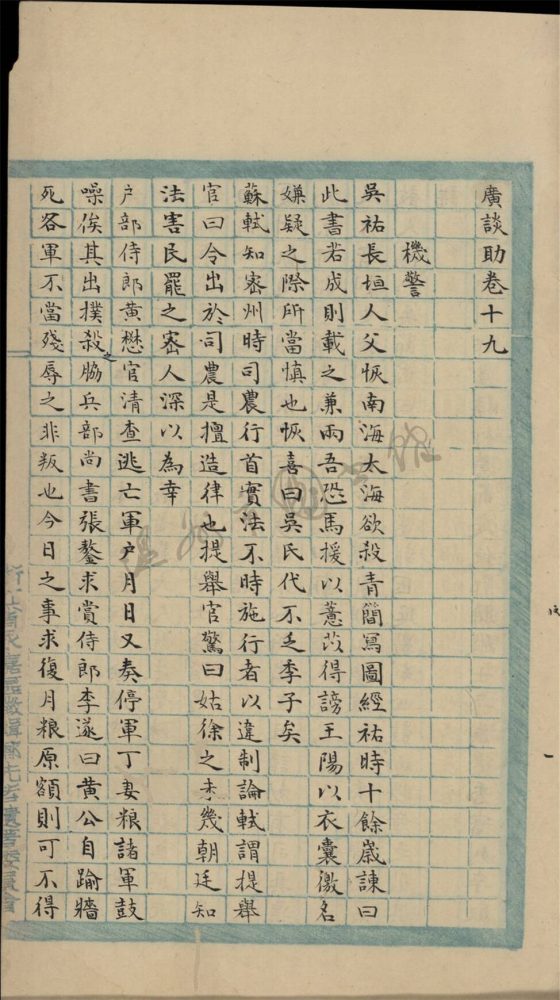 廣談助卷十九
機警
吳祐長垣人父恢南海太海欲殺青簡寫圖經祐時十餘歲諫曰
此書若成則載之兼兩吾恐馬援以薏苡得謗王陽以衣囊徼名
嫌疑之際所當慎也恢喜曰吳氏代不乏季子矣
蘇軾知密州時司農行首實法不時施行者以違制論軾謂提舉
官曰令出於司農是擅造律也提舉官驚曰姑徐之未幾朝廷知
法害民罷之密人深以為幸
戶部侍郎黃懋官清查逃亡軍戶月日又奏停軍丁妻粮諸軍鼓
噪俟其出撲殺之脇兵部尚書張鏊求賞侍郎李遂曰黃公自踰牆
死各軍不當殘辱之非叛也今日之事求復月粮原額則可不得